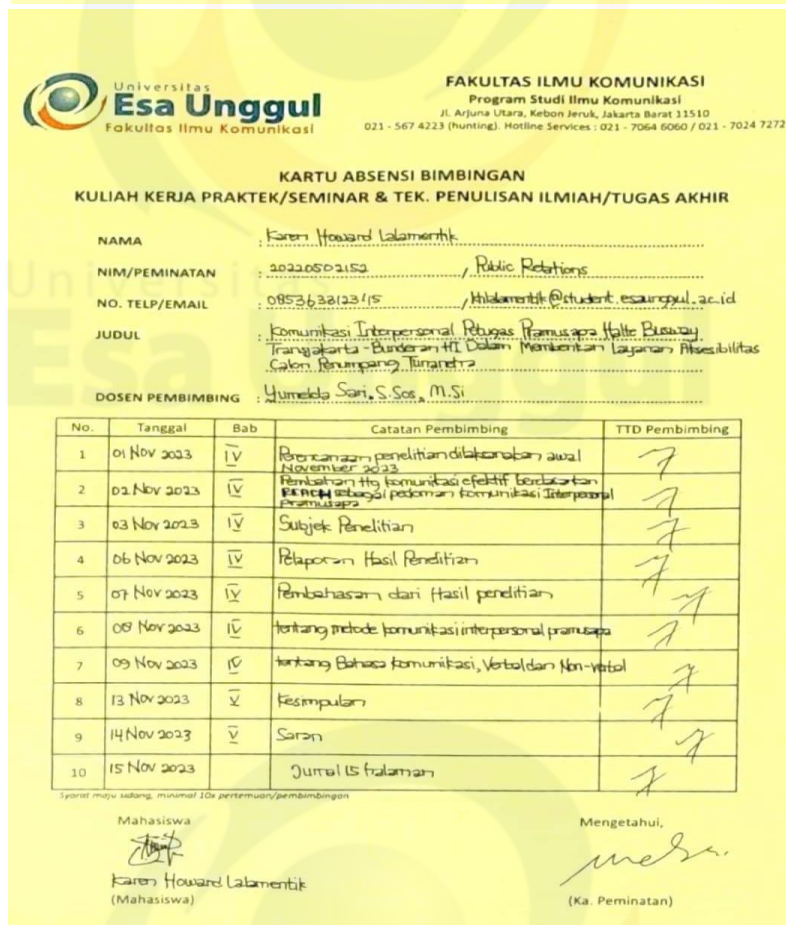 Universitas
Esa Unggul
Fakultas Ilmu Komunikasi
FAKULTAS ILMU KOMUNIKASI
Program Studi Ilmu Komunikasi
Jl. Arjuna Utara, Kebon Jeruk, Jakarta Barat 11510
021 - 567 4223 (hunting). Hotline Services : 021 - 7064 6060 / 021 - 7024 7272
KARTU ABSENSI BIMBINGAN
KULIAH KERJA PRAKTEK/SEMINAR & TEK. PENULISAN ILMIAH/TUGAS AKHIR
NAMA : Karen Howard Lalamentik
NIM/PEMINATAN : 20220502152 / Public Relations
NO. TELP/EMAIL : 085363312315 / khlalamentik@student.esaunggul.ac.id
JUDUL : Komunikasi Interpersonal Petugas Pramusapa Halte Busway
Transjakarta - Bunderan HI Dalam Memberikan Layanan Aksesibilitas
Calon Penumpang Tunanetra
DOSEN PEMBIMBING : Yumelda Sari, S.Sos, M.Si
No. Tanggal Bab Catatan Pembimbing TTD Pembimbing
1 01 Nov 2023 IV Perencanaan penelitian dilaksanakan awal
November 2023
2 02 Nov 2023 IV Pembahan ttg komunikasi efektif berdasarkan
REACH sebagai pedoman komunikasi Interpersonal
pramusapa
3 03 Nov 2023 IV Subjek Penelitian
4 06 Nov 2023 IV Pelaporan Hasil Penelitian
5 07 Nov 2023 IV Pembahasan dari Hasil penelitian
6 08 Nov 2023 IV tentang metode komunikasi interpersonal pramusapa
7 09 Nov 2023 IV tentang Bahasa komunikasi, Verbal dan Non-verbal
8 13 Nov 2023 V Kesimpulan
9 14 Nov 2023 V Saran
10 15 Nov 2023 Jurnal 15 halaman
Syarat maju sidang, minimal 10x pertemuan/pembimbingan
Mahasiswa Mengetahui,
Karen Howard Lalamentik
(Mahasiswa) (Ka. Peminatan)
Universitas
Esa Unggul